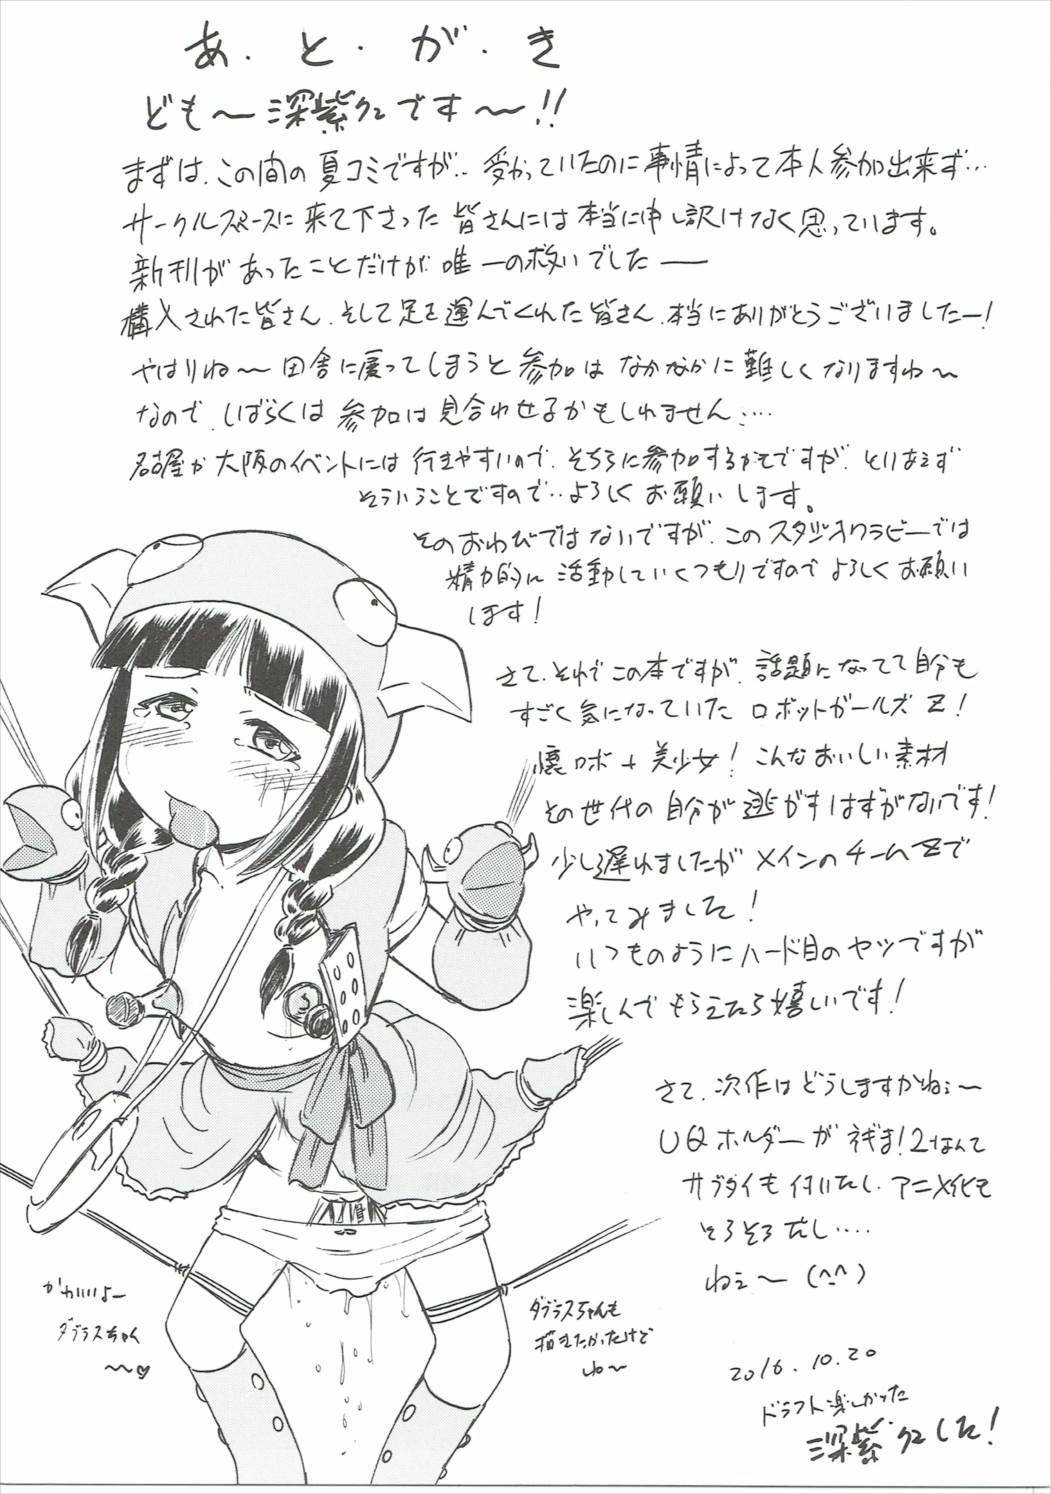 あ・と・が・き
ども～深紫クニです～!!
まずは、この間の夏コミですが‥受かっていたのに事情によって本人参加出来ず…
サークルスペースに来て下さった皆さんには本当に申し訳けなく思っています。
新刊があったことだけが唯一の救いでした――
購入された皆さん、そして足を運んでくれた皆さん、本当にありがとうございましたー!
やはりね～田舎に戻ってしまうと参加はなかなかに難しくなりますね～
なので、しばらくは参加は見合わせるかもしれません‥‥
名古屋か大阪のイベントには行きやすいので、そちらに参加するかもですが、とりあえず
そういうことですので‥よろしくお願いします。
そのおわびではないですが、このスタジオクラビーでは
精力的に活動していくつもりですのでよろしくお願い
します!
さて、それでこの本ですが、話題になってて自分も
すごく気になっていたロボットガールズZ!
懐ロボ+美少女!こんなおいしい素材
その世代の自分が逃がすはずがないです!
少し遅れましたがメインのチームZで
やってみました!
いつものようにハード目のヤツですが
楽しんでもらえたら嬉しいです!
さて、次作はどうしますかねぇ～
UQホルダーがネギま!2なんて
サブタイも付いたし、アニメ化も
そろそろだし‥‥
ねぇ～(^-^)
かわいいよー
ダブラスちゃん
～～♡
ダブラスちゃんも
描きたかったけど
ね～
2016.10.20
ドラフト楽しかった
深紫クニでした!